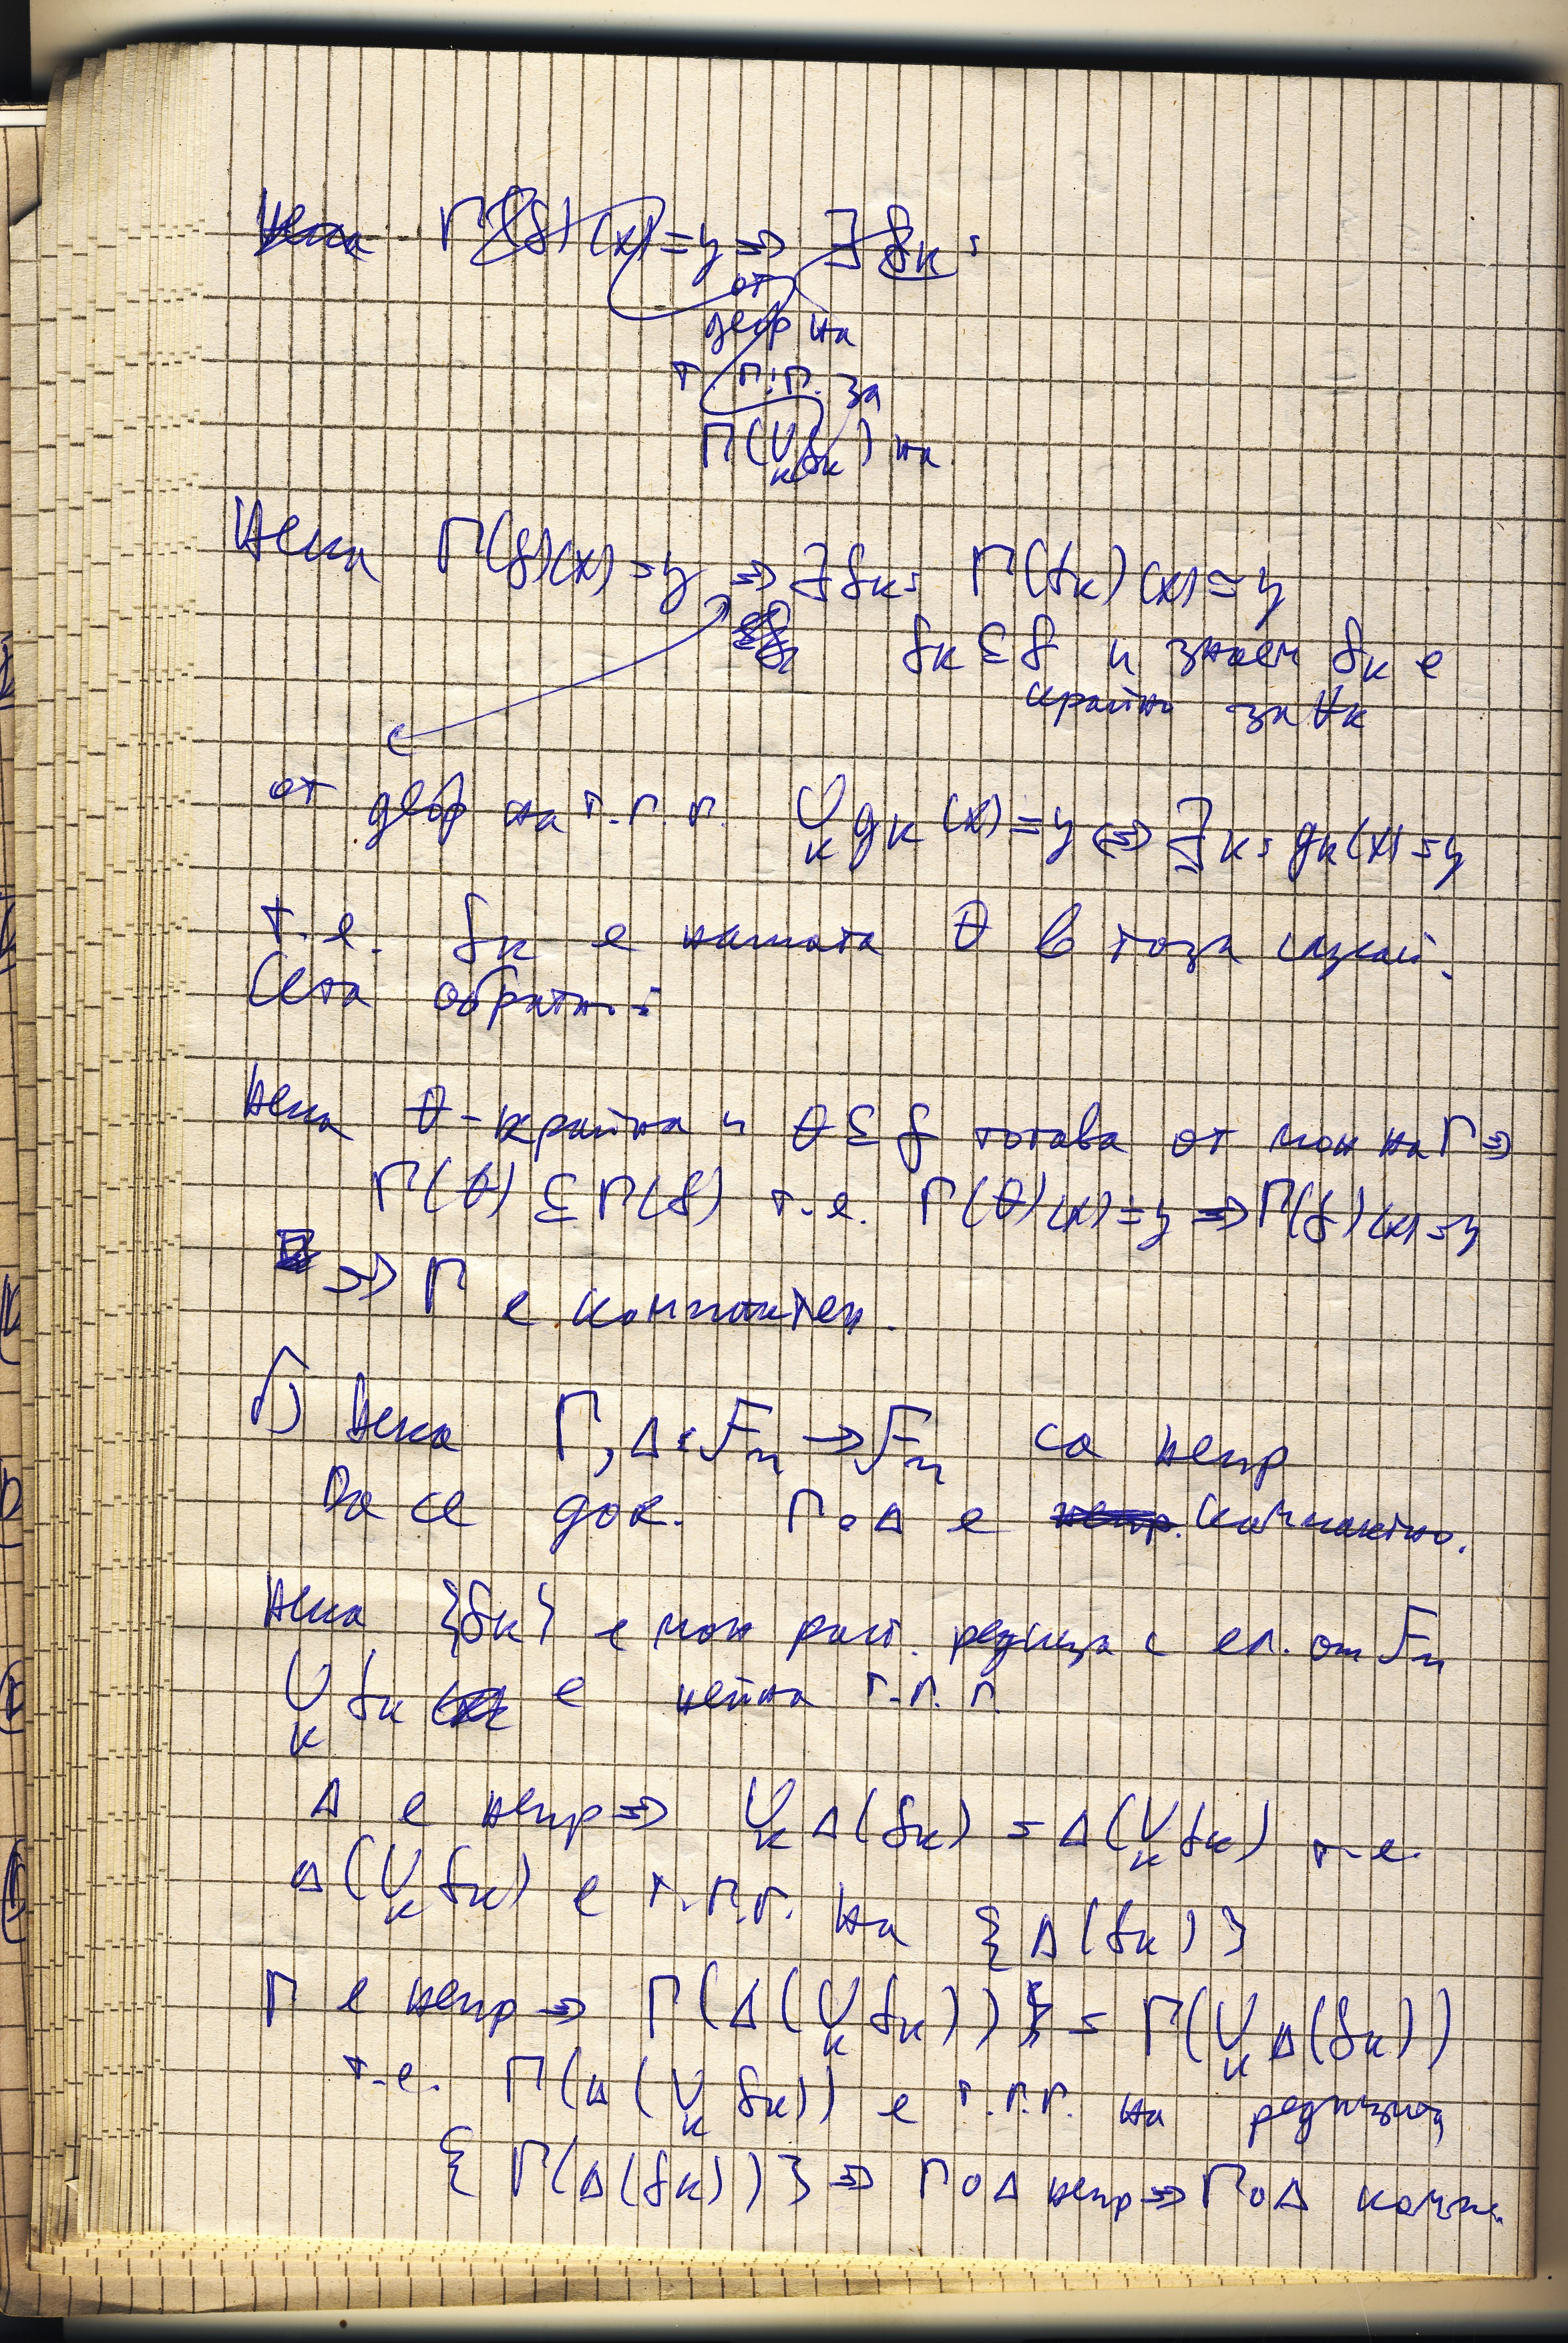 Нека Γ(f)(x)=y ⇒ ∃ fₖ:
от
деф на
т. г. г. за
Γ(∪ₖ fₖ) на
Нека Γ(f)(x)=y ⇒ ∃ fₖ: Γ(fₖ)(x)=y
fₖ ⊆ f и знаем fₖ е
крайно за ∀k
от деф на т.г.г. ∪ₖ gₖ(x)=y ⇔ ∃k: gₖ(x)=y
т.е. fₖ е нашата θ в този случай.
Сега обратно:
Нека θ-крайна и θ ⊆ f тогава от мон на Γ ⇒
Γ(θ) ⊆ Γ(f) т.е. Γ(θ)(x)=y ⇒ Γ(f)(x)=y
⇒ Γ е компактен.
б) Нека Γ, Δ: Fₙ → Fₙ са непр
Да се док. Γ∘Δ е непр. компактно.
Нека {fₖ} е мон раст. редица с ел. от Fₙ
∪ₖ fₖ е нейна т.г.г.
Δ е непр ⇒ ∪ₖ Δ(fₖ) = Δ(∪ₖ fₖ) т.е.
Δ(∪ₖ fₖ) е т.г.г. на {Δ(fₖ)}
Γ е непр ⇒ Γ(Δ(∪ₖ fₖ)) = Γ(∪ₖ Δ(fₖ))
т.е. Γ(Δ(∪ₖ fₖ)) е т.г.г. на редицата
{Γ(Δ(fₖ))} ⇒ Γ∘Δ непр ⇒ Γ∘Δ комп.